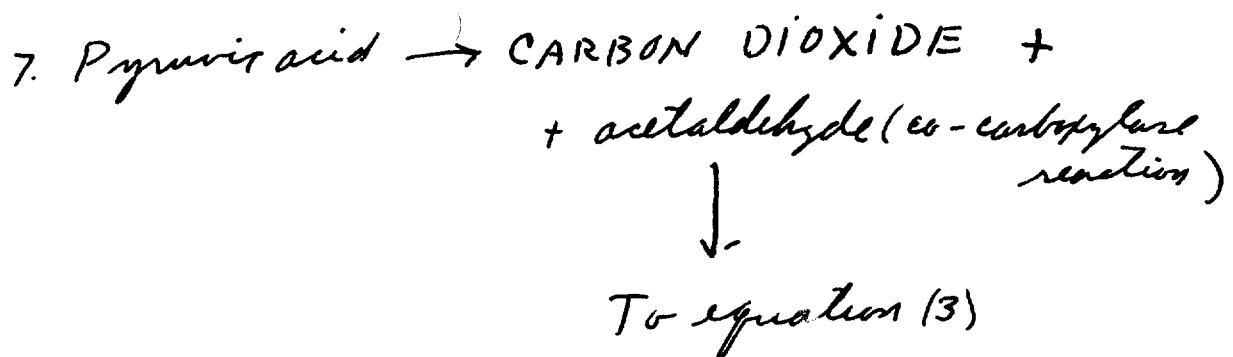 7. Pyruvic acid → CARBON DIOXIDE +
+ acetaldehyde (co-carboxylase
reaction)
↓
To equation (3)